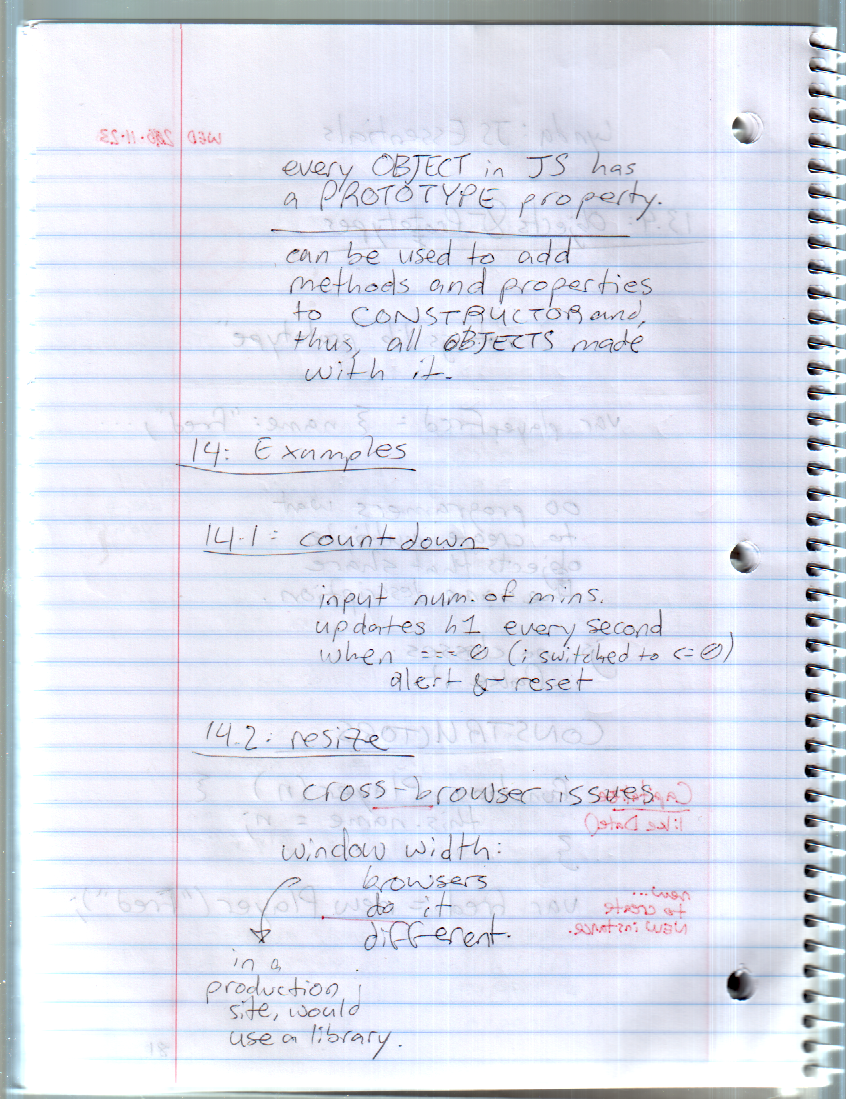 every OBJECT in JS has
a PROTOTYPE property.
can be used to add
methods and properties
to CONSTRUCTOR and,
thus, all OBJECTS made
with it.
14: Examples
14.1: countdown
input num. of mins.
updates h1 every second
when === 0 (i switched to <= 0)
alert & reset
14.2: resize
cross-browser issues
window width:
browsers
do it
different.
in a
production
site, would
use a library.